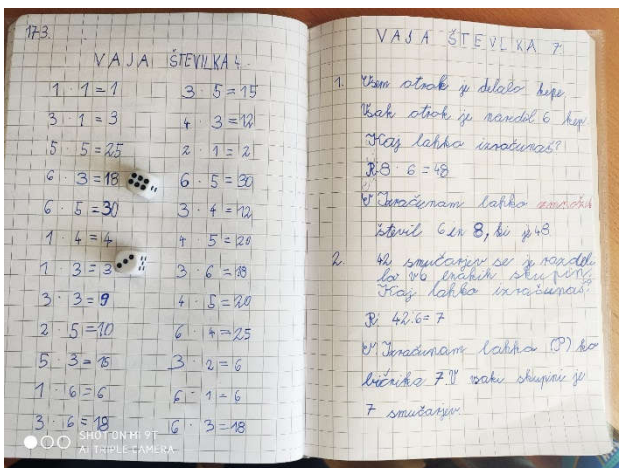 173.
VAJA ŠTEVILKA 4.
1 · 1 = 1
3 · 1 = 3
5 · 5 = 25
6 · 3 = 18
6 · 5 = 30
1 · 4 = 4
1 · 3 = 3
3 · 3 = 9
2 · 5 = 10
5 · 3 = 15
1 · 6 = 6
3 · 6 = 18
3 · 5 = 15
4 · 3 = 12
2 · 1 = 2
6 · 5 = 30
3 · 4 = 12
4 · 5 = 20
3 · 6 = 18
4 · 5 = 20
6 · 4 = 25
3 · 2 = 6
6 · 1 = 6
6 · 3 = 18
SHOT ON MI 9T
AI TRIPLE CAMERA
VAJA ŠTEVLKA 7.
1. Osem otrok je delalo kepe
Vsak otrok je naredil 6 kep
Kaj lahko izračunaš?
R: 8 · 6 = 48
O Izračunam lahko zmnožek
števil 6 in 8, ki je 48
2. 42 smučarjev se je razdelilo v 6 enakih skupin.
Kaj lahko izračunaš?
R: 42:6 = 7
O Izračunam lahko
7 V vsaki skupini je
7 smučarjev